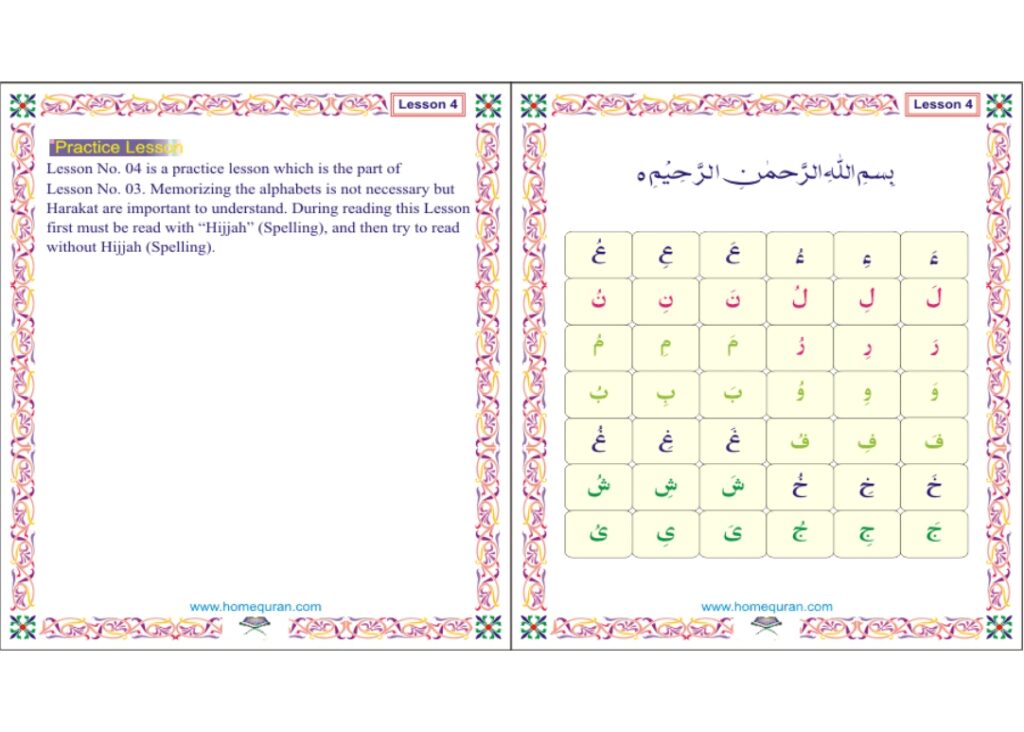 Lesson 4
Practice Lesson
Lesson No. 04 is a practice lesson which is the part of
Lesson No. 03. Memorizing the alphabets is not necessary but
Harakat are important to understand. During reading this Lesson
first must be read with “Hijjah” (Spelling), and then try to read
without Hijjah (Spelling).
www.homequran.com
Lesson 4
بِسمِ اللهِ الرَّحمٰنِ الرَّحِيْمِ ه
ءَ ءِ ءُ عَ عِ عُ
لَ لِ لُ نَ نِ نُ
رَ رِ رُ مَ مِ مُ
وَ وِ وُ بَ بِ بُ
فَ فِ فُ غَ غِ غُ
خَ خِ خُ شَ شِ شُ
جَ جِ جُ یَ یِ یُ
www.homequran.com